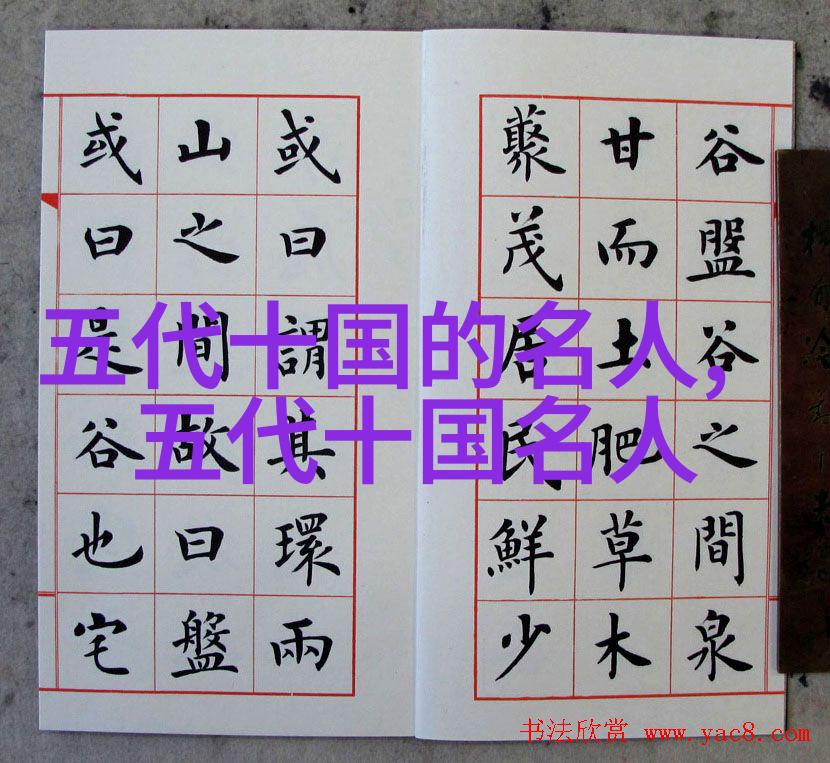 谷盤谷之間泉
甘而土肥草木
藂茂居民鮮少
或曰謂其環兩
山之間故曰盤
或曰是谷也宅
五代十国的名人,
五代十国名人
书法欣赏 www.yac8.com